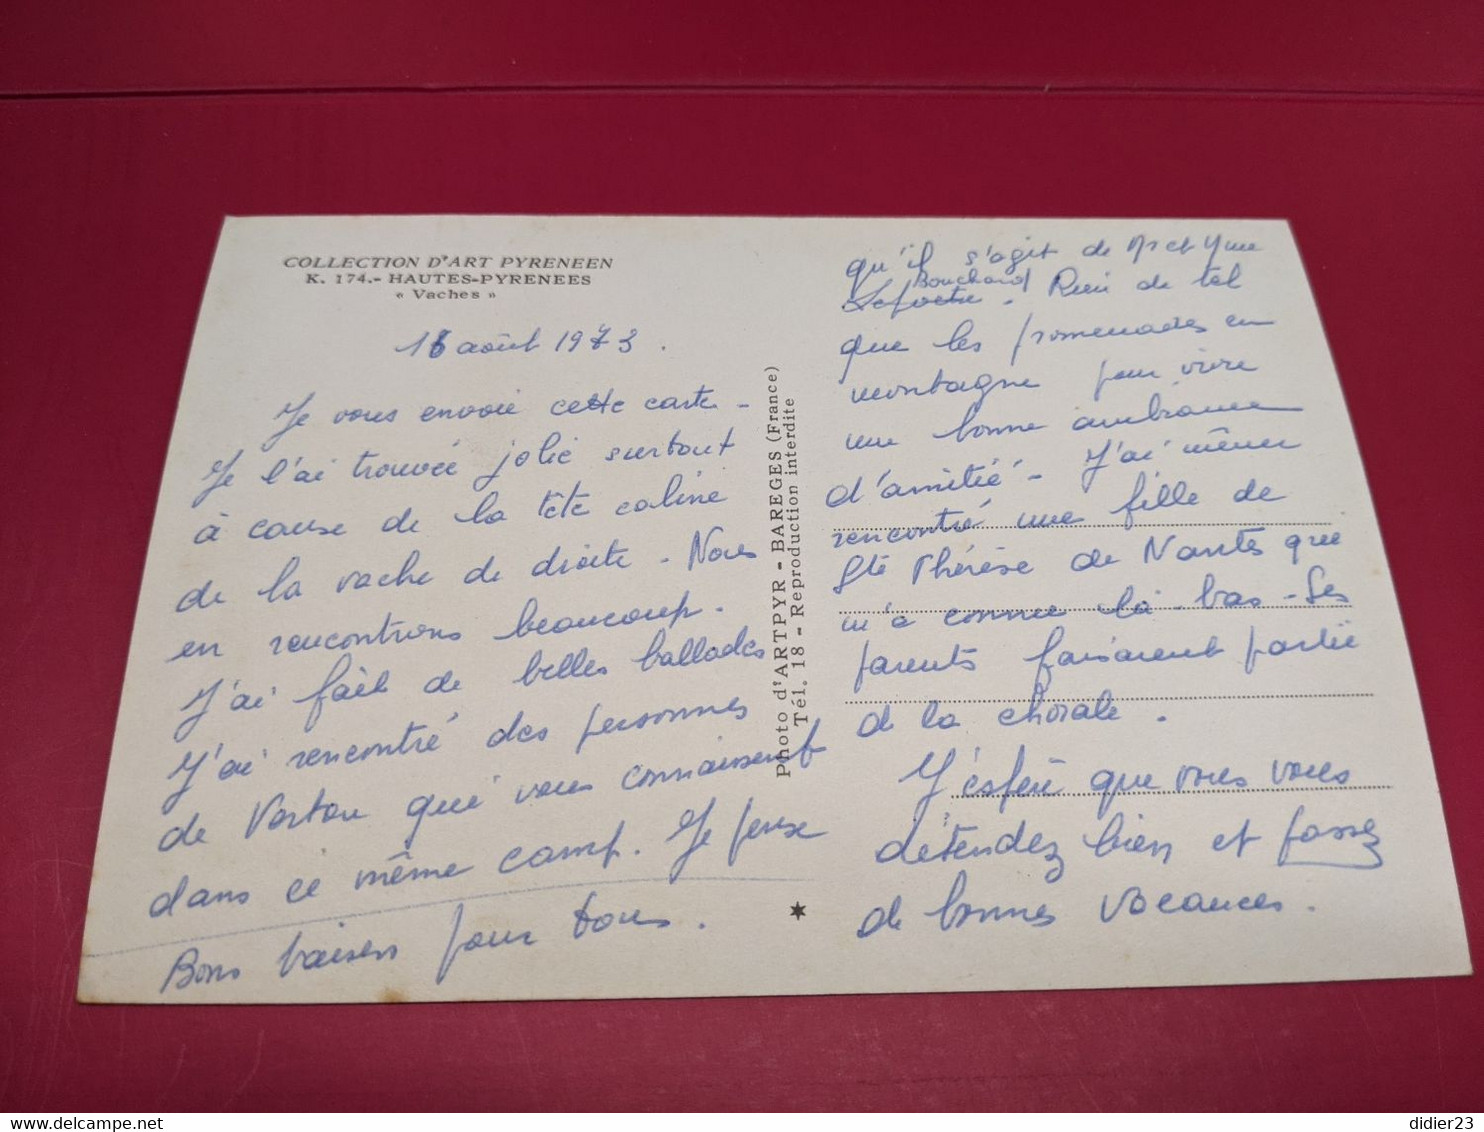 COLLECTION D'ART PYRENEEN
K. 174.- HAUTES-PYRENEES
« Vaches »
août 1973.
Je vous envoie cette carte -
Je l'ai trouvée jolie surtout
à cause de la tête caline
de la vache de droite. Nous
en rencontrons beaucoup.
J'ai fait de belles ballades
J'ai rencontré des personnes
de Vertou qui vous connaissent
dans ce même camp. Je pense
qu'il s'agit de Mr et Mme
Bouchard
Rien de tel
que les promenades en
montagne pour vivre
une bonne ambiance
d'amitié - J'ai même
rencontré une fille de
Ste Thérèse de Nantes que
m'a connue là-bas - Ses
parents faisaient partie
de la chorale.
J'espère que vous vous
détendez bien et passez
de bonnes vacances.
Bons baisers pour tous.
Photo d'ARTPYR - BAREGES (France)
Tél. 18 - Reproduction interdite
didier23